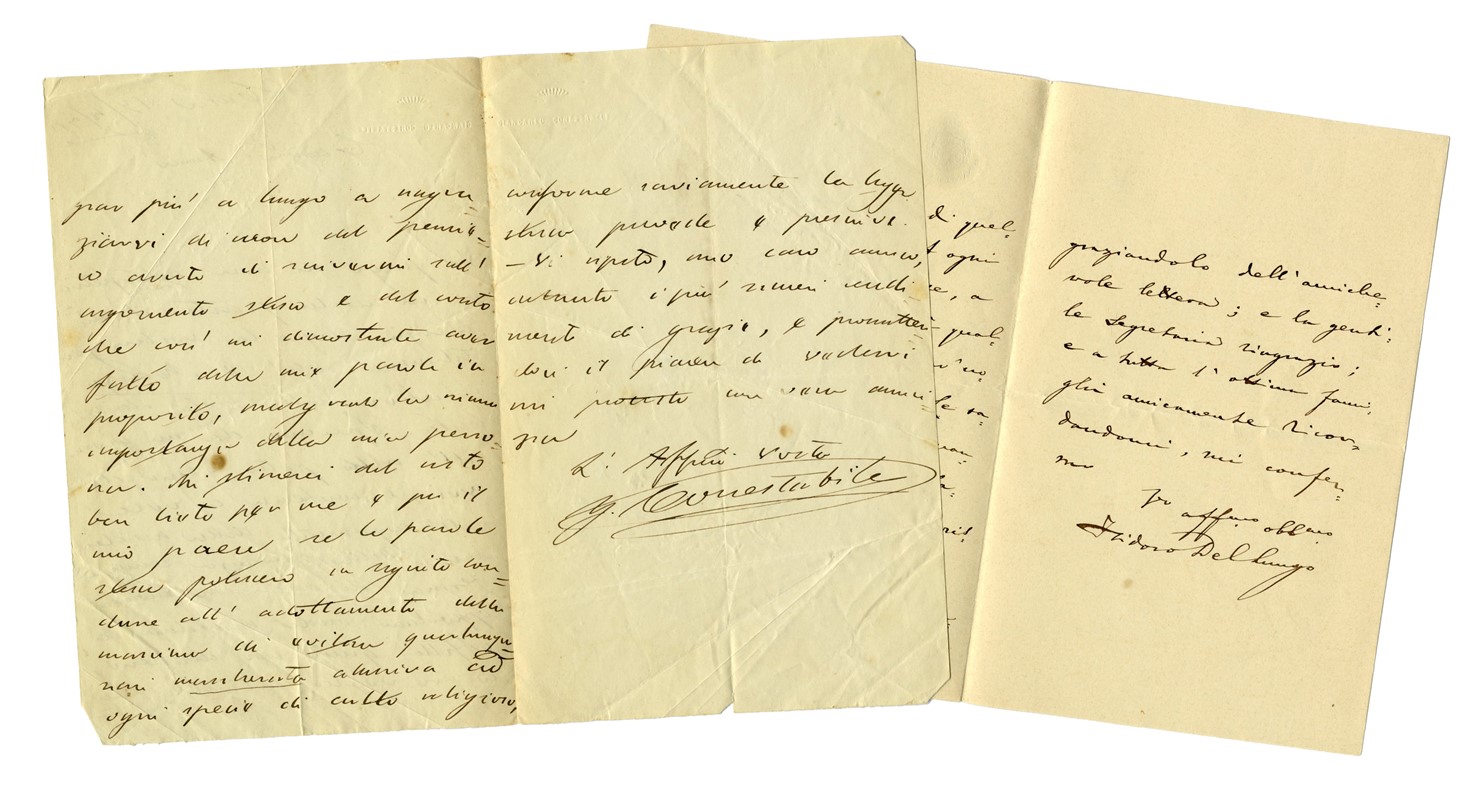 per più a lungo a ringra=
ziarvi di cuore del pensie=
ro avuto di scrivermi sull'
argomento stesso e del conto
che così mi dimostrate aver
fatto delle mie parole in
proposito,
importanza della mia perso=
na. Mi stimerei del resto
ben lieto per me e per il
mio paese se le parole
stesse potessero in seguito con=
durre all' adottamento della
massima di evitare qualunque
ogni specie di culto religioso,
conforme saviamente la legge
stessa provvede e prescrive.
– Vi ripeto, mio caro amico,
intanto i più sinceri rendi
menti di grazie, e promitten=
domi il piacere di vedervi
mi protesto con vera amici=
zia
L' Affmo Vostro
G. Conestabile
di qual=
ogni
a
qual=
graziandolo dell'amiche=
vole lettera; e la genti=
le Segretaria ringrazio;
e a tutta l'ottima fami,
glia amicamente ricor=
dandomi, mi confer=
mo
affmo obblmo
Isidoro Del Lungo